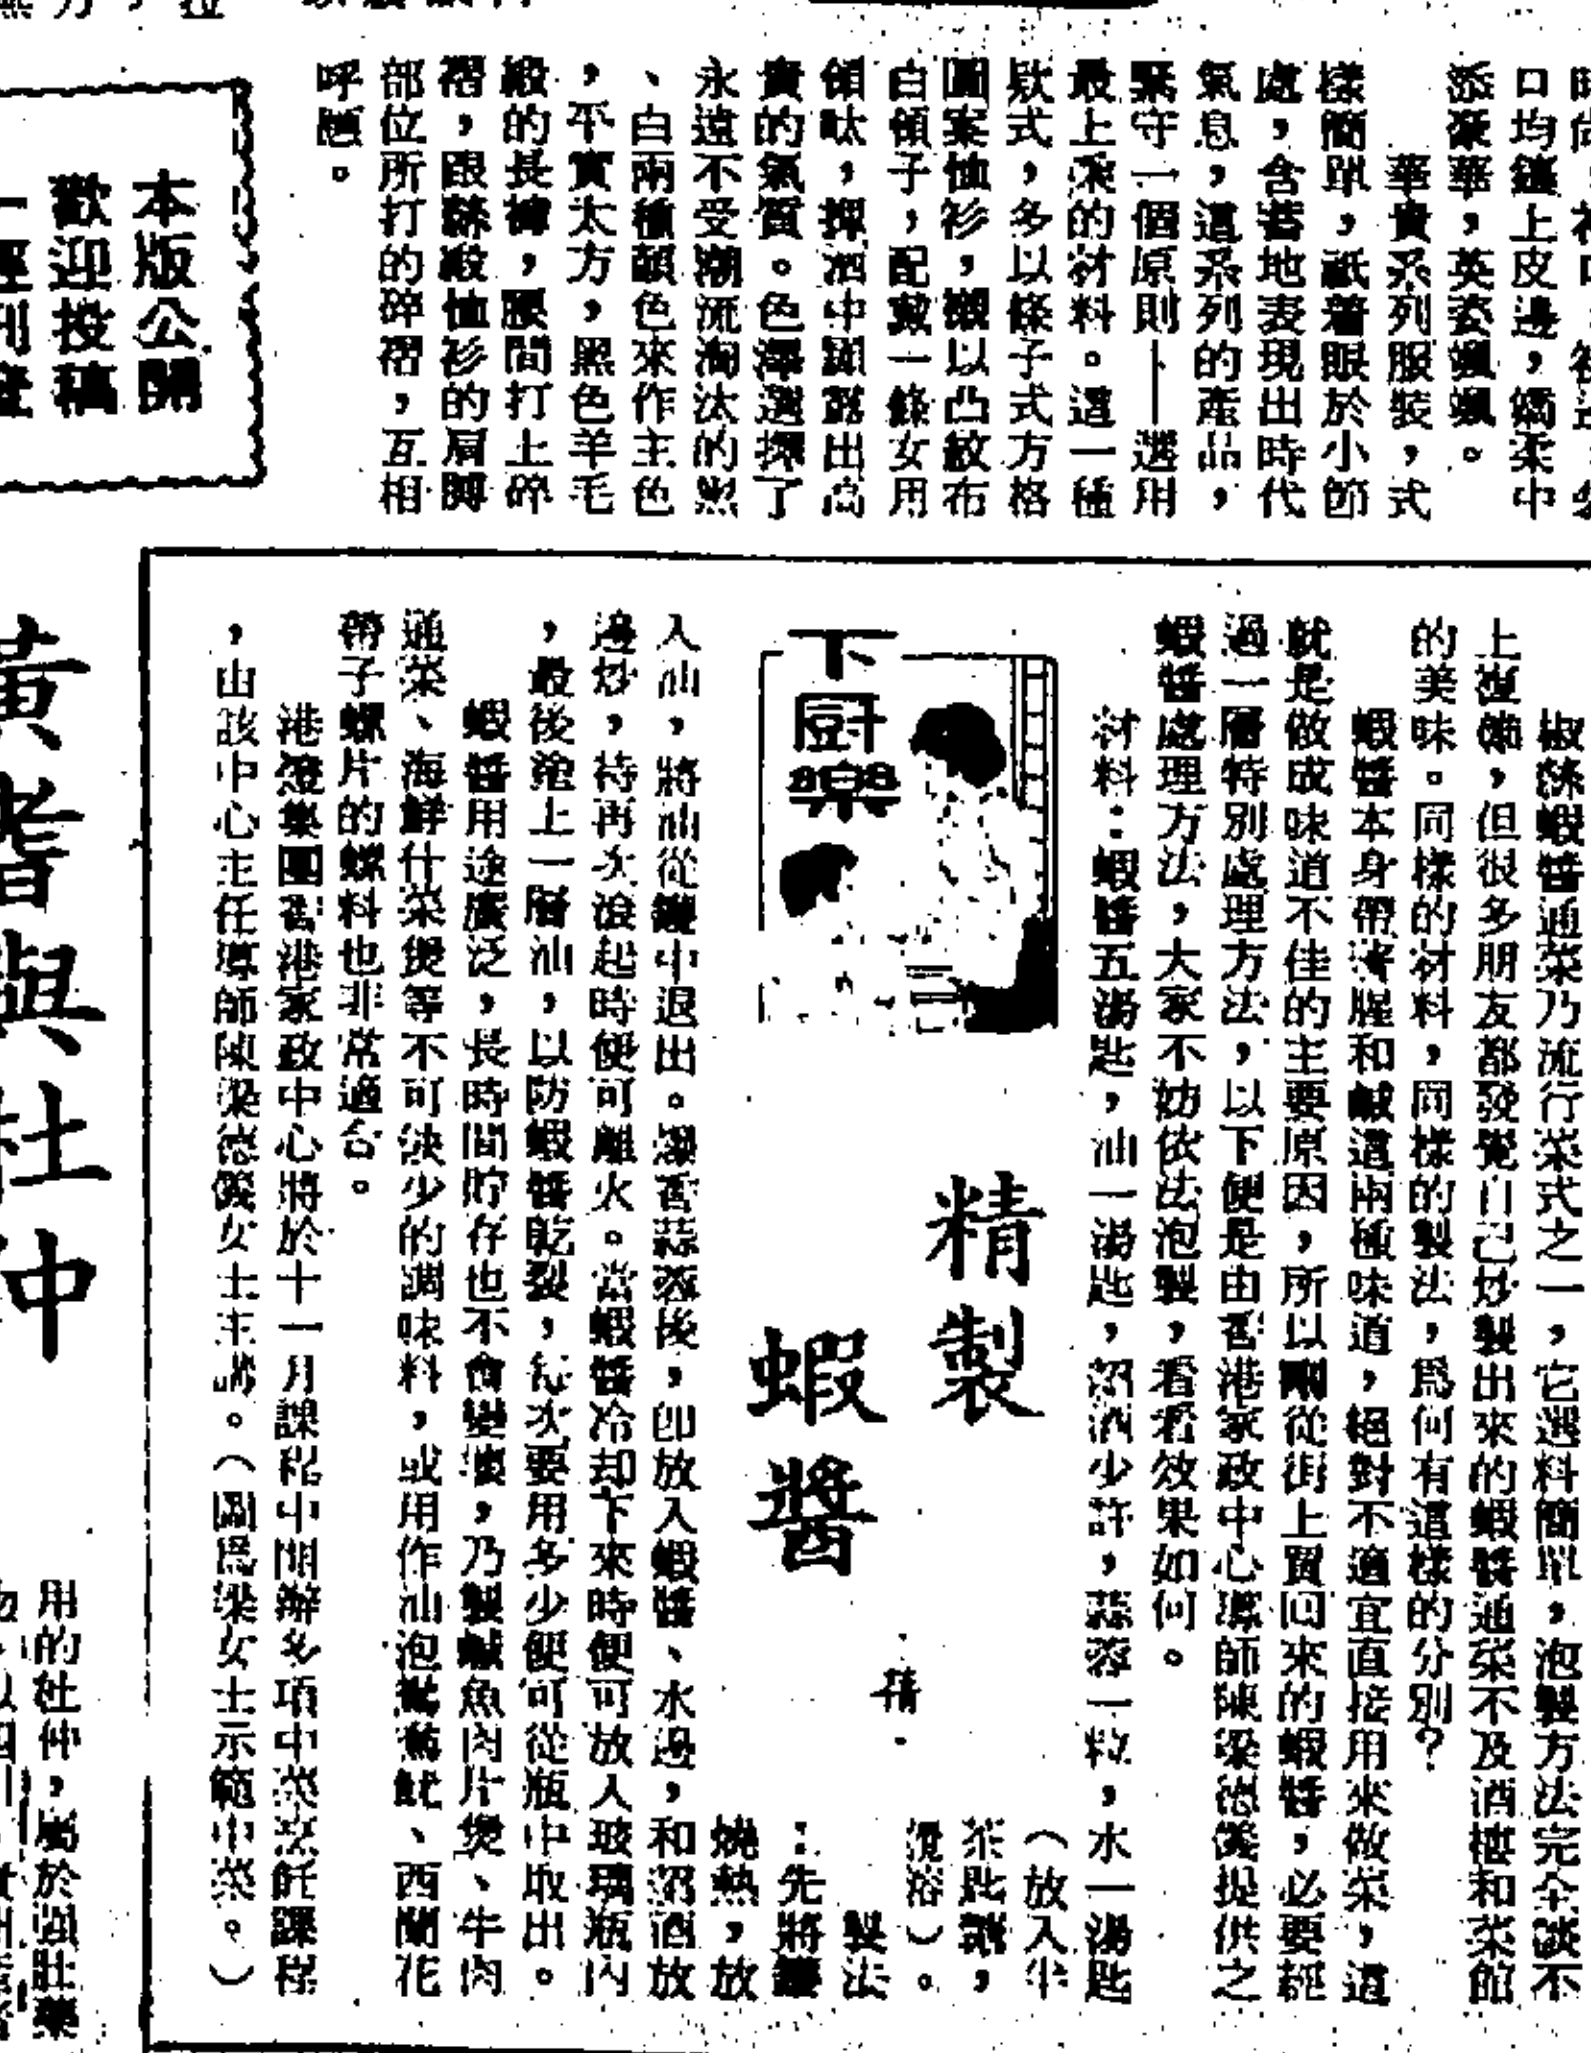 口均鑲上皮邊，嬌柔中
添豪華，英姿颯颯。
華貴系列服裝，式
樣簡單，祇着眼於小節
處，含蓄地表現出時代
氣息，這系列的產品，
緊守一個原則——選用
最上乘的材料。這一種
欵式，多以條子式方格
圖案恤衫，襯以凸紋布
白領子，配戴一條女用
領呔，揮洒中顯露出高
貴的氣質。色澤選擇了
永遠不受潮流淘汰的黑
、白兩種顏色來作主色
，平實大方，黑色羊毛
緞的長褲，腰間打上碎
褶，跟絲緞恤衫的肩膊
部位所打的碎褶，互相
呼應。
本版公開
歡迎投稿
一經刊登
椒絲蝦醬通菜乃流行菜式之一，它選料簡單，泡製方法完全談不
上複雜，但很多朋友都發覺自己炒製出來的蝦醬通菜不及酒樓和菜館
的美味。同樣的材料，同樣的製法，爲何有這樣的分別？
蝦醬本身帶濟腥和鹹這兩種味道，絕對不適宜直接用來做菜，這
就是做成味道不佳的主要原因，所以剛從街上買回來的蝦醬，必要經
過一層特別處理方法，以下便是由香港家政中心導師陳梁德儀提供之
蝦醬處理方法，大家不妨依法泡製，看看效果如何。
材料：蝦醬五湯匙，油一湯匙，紹酒少許，蒜蓉一粒，水一湯匙
（放入半
茶匙糖，
攪溶）。
下厨樂
精製
蝦醬
精
製法
：先將鑊
燒熱，放
入油，將油從鑊中退出。爆香蒜蓉後，卽放入蝦醬、水邊，和紹酒放
邊炒，待再次滾起時便可離火。當蝦醬冷却下來時便可放入玻璃瓶內
，最後澆上一層油，以防蝦醬乾裂，每次要用多少便可從瓶中取出。
蝦醬用途廣泛，長時間貯存也不會變壞，乃製鹹魚肉片煲、牛肉
通菜、海鮮什菜煲等不可缺少的調味料，或用作油泡鴛鴦魷、西蘭花
帶子螺片的蘸料也非常適合。
港燈集團香港家政中心將於十一月課程中開辦多項中菜烹飪課程
，由該中心主任導師陳梁德儀女士主講。（圖爲梁女士示範中菜。）
黃耆與杜仲
用的杜仲，屬於強壯藥